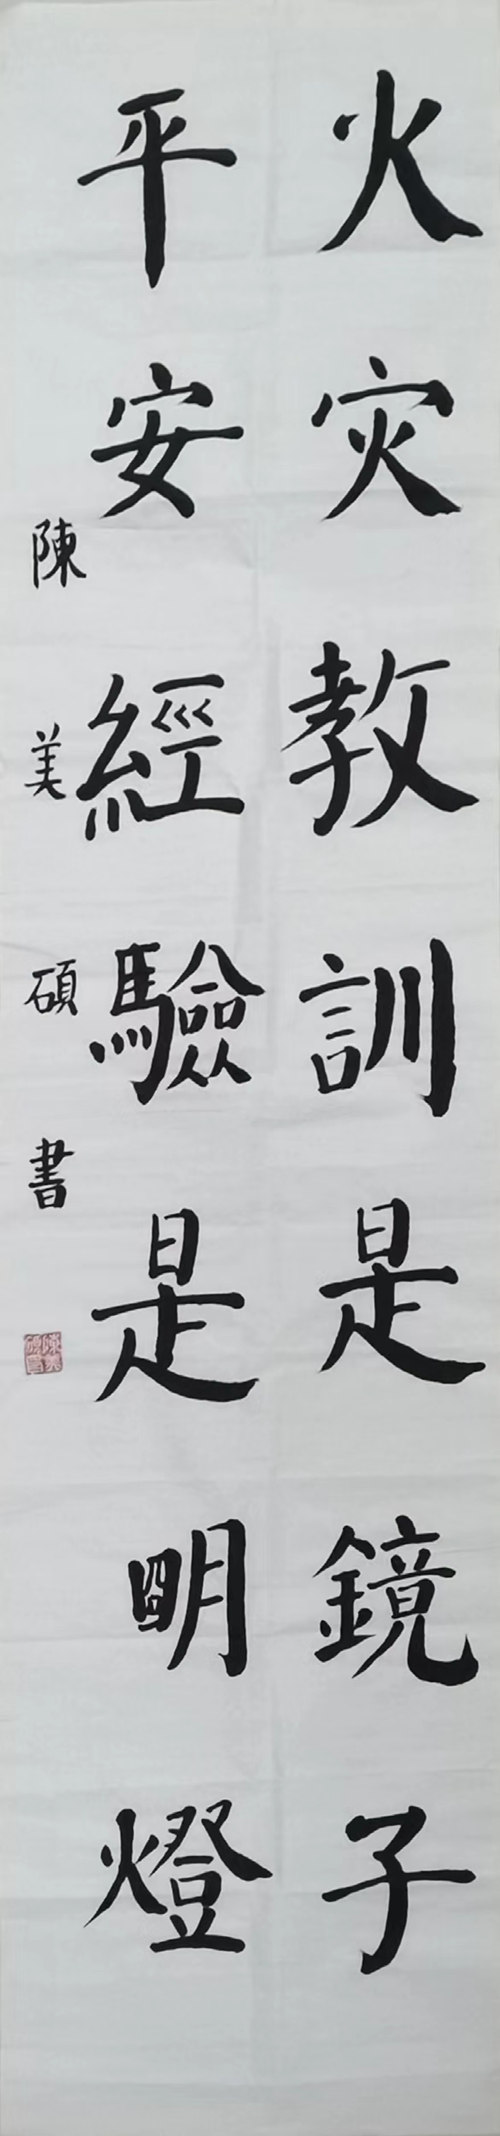 火灾教訓是鏡子
平安經驗是明燈
陳美碩書